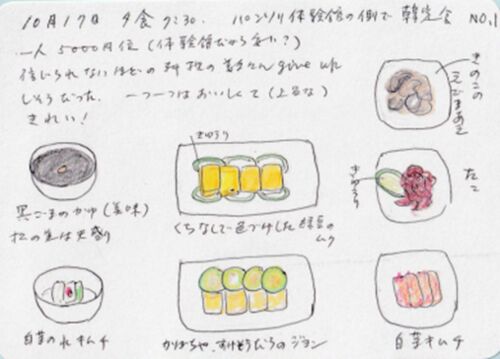 10月17日 夕食 7:30. パンソリ体験館の側で 韓定食 NO,1
一人 5000円位 (体験館だから安い?)
信じられないほどの料理の数々 give up
しそうだった. 一つ一つはおいしくて (上品な)
きれい!
きのこの
えごまあえ
黒ごまのかゆ (美味)
松の実は大盛り
きゅうり
くちなしで色づけした緑豆の
ムク
たこ
きゅうり
白菜の水キムチ
かぼちゃ、すけそうだらのジョン
白菜キムチ